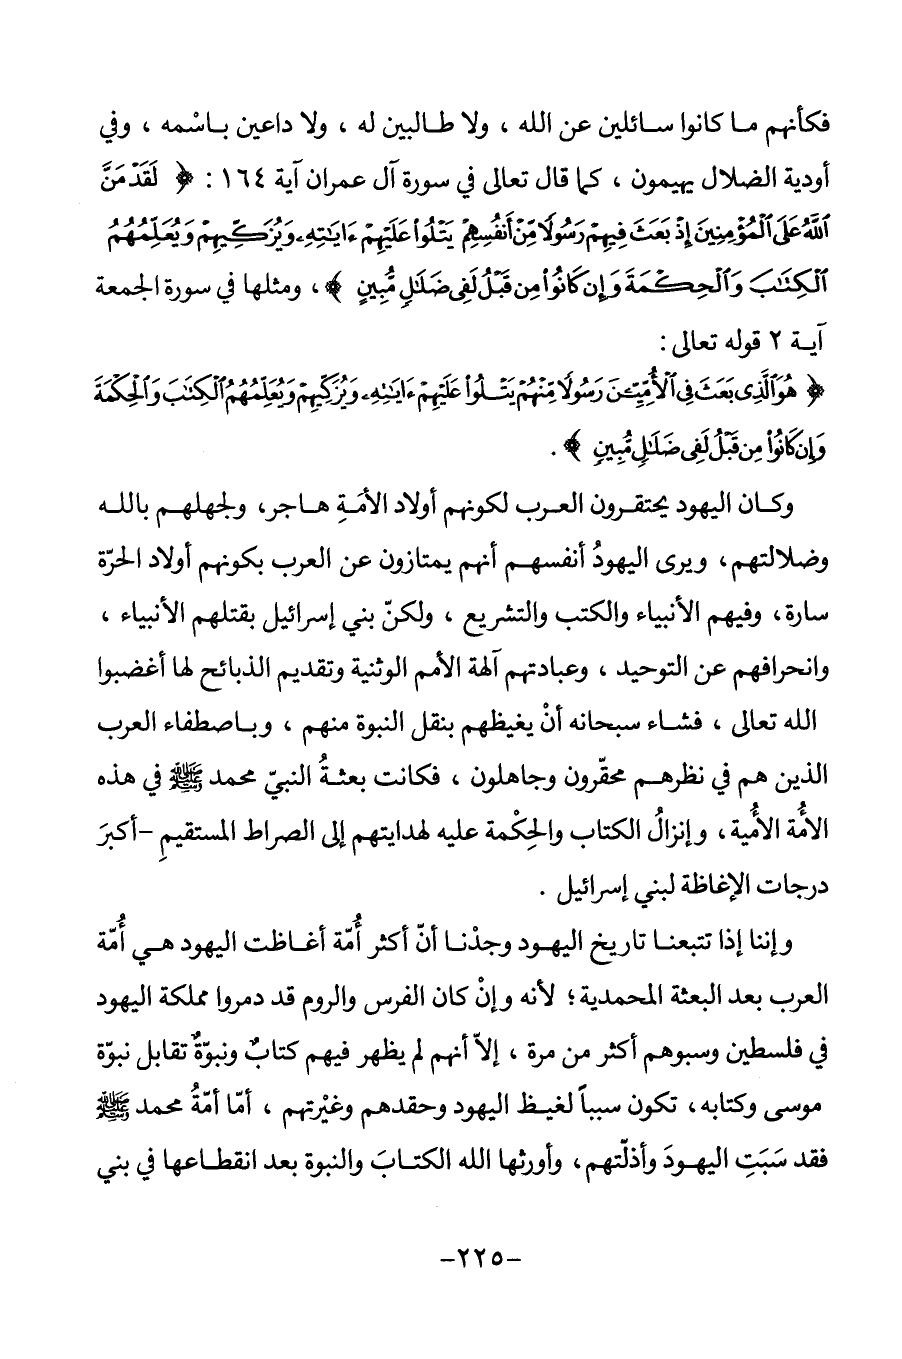 فكأنهم ما كانوا سائلين عن الله ، ولا طالبين له ، ولا داعين باسْمه ، وفي
أودية الضلال يهيمون ، كما قال تعالى في سورة آل عمران آية ١٦٤ : ﴿ لَقَدْ مَنَّ
ٱللَّهُ عَلَى ٱلْمُؤْمِنِينَ إِذْ بَعَثَ فِيهِمْ رَسُولًا مِّنْ أَنفُسِهِمْ يَتْلُوا۟ عَلَيْهِمْ ءَايَٰتِهِۦ وَيُزَكِّيهِمْ وَيُعَلِّمُهُمُ
ٱلْكِتَٰبَ وَٱلْحِكْمَةَ وَإِن كَانُوا۟ مِن قَبْلُ لَفِى ضَلَٰلٍ مُّبِينٍ ﴾ ، ومثلها في سورة الجمعة
آية ٢ قوله تعالى :
﴿ هُوَ ٱلَّذِى بَعَثَ فِى ٱلْأُمِّيِّـۧنَ رَسُولًا مِّنْهُمْ يَتْلُوا۟ عَلَيْهِمْ ءَايَٰتِهِۦ وَيُزَكِّيهِمْ وَيُعَلِّمُهُمُ ٱلْكِتَٰبَ وَٱلْحِكْمَةَ
وَإِن كَانُوا۟ مِن قَبْلُ لَفِى ضَلَٰلٍ مُّبِينٍ ﴾ .
وكان اليهود يحتقرون العرب لكونهم أولاد الأمَةِ هاجر، ولجهلهم بالله
وضلالتهم، ويرى اليهودُ أنفسهم أنهم يمتازون عن العرب بكونهم أولاد الحرّة
سارة، وفيهم الأنبياء والكتب والتشريع ، ولكنّ بني إسرائيل بقتلهم الأنبياء ،
وانحرافهم عن التوحيد ، وعبادتهم آلهة الأمم الوثنية وتقديم الذبائح لها أغضبوا
الله تعالى ، فشاء سبحانه أنْ يغيظهم بنقل النبوة منهم ، وباصطفاء العرب
الذين هم في نظرهم محقّرون وجاهلون ، فكانت بعثةُ النبيّ محمد ﷺ في هذه
الأُمّة الأُمية، وإنزالُ الكتاب والحِكْمة عليه لهدايتهم إلى الصراط المستقيمِ –أكبرَ
درجات الإغاظة لبني إسرائيل .
وإننا إذا تتبعنا تاريخ اليهود وجدْنا أنّ أكثر أُمّة أغاظت اليهود هي أُمّة
العرب بعد البعثة المحمدية؛ لأنه وإنْ كان الفرس والروم قد دمروا مملكة اليهود
في فلسطين وسبوهم أكثر من مرة ، إلاّ أنهم لم يظهر فيهم كتابٌ ونبوّةٌ تقابل نبوّة
موسى وكتابه، تكون سبباً لغيظ اليهود وحقدهم وغيْرتهم ، أمّا أمّةُ محمد ﷺ
فقد سَبَتِ اليهودَ وأذلّتهم، وأورثها الله الكتابَ والنبوة بعد انقطاعها في بني
–٢٢٥–